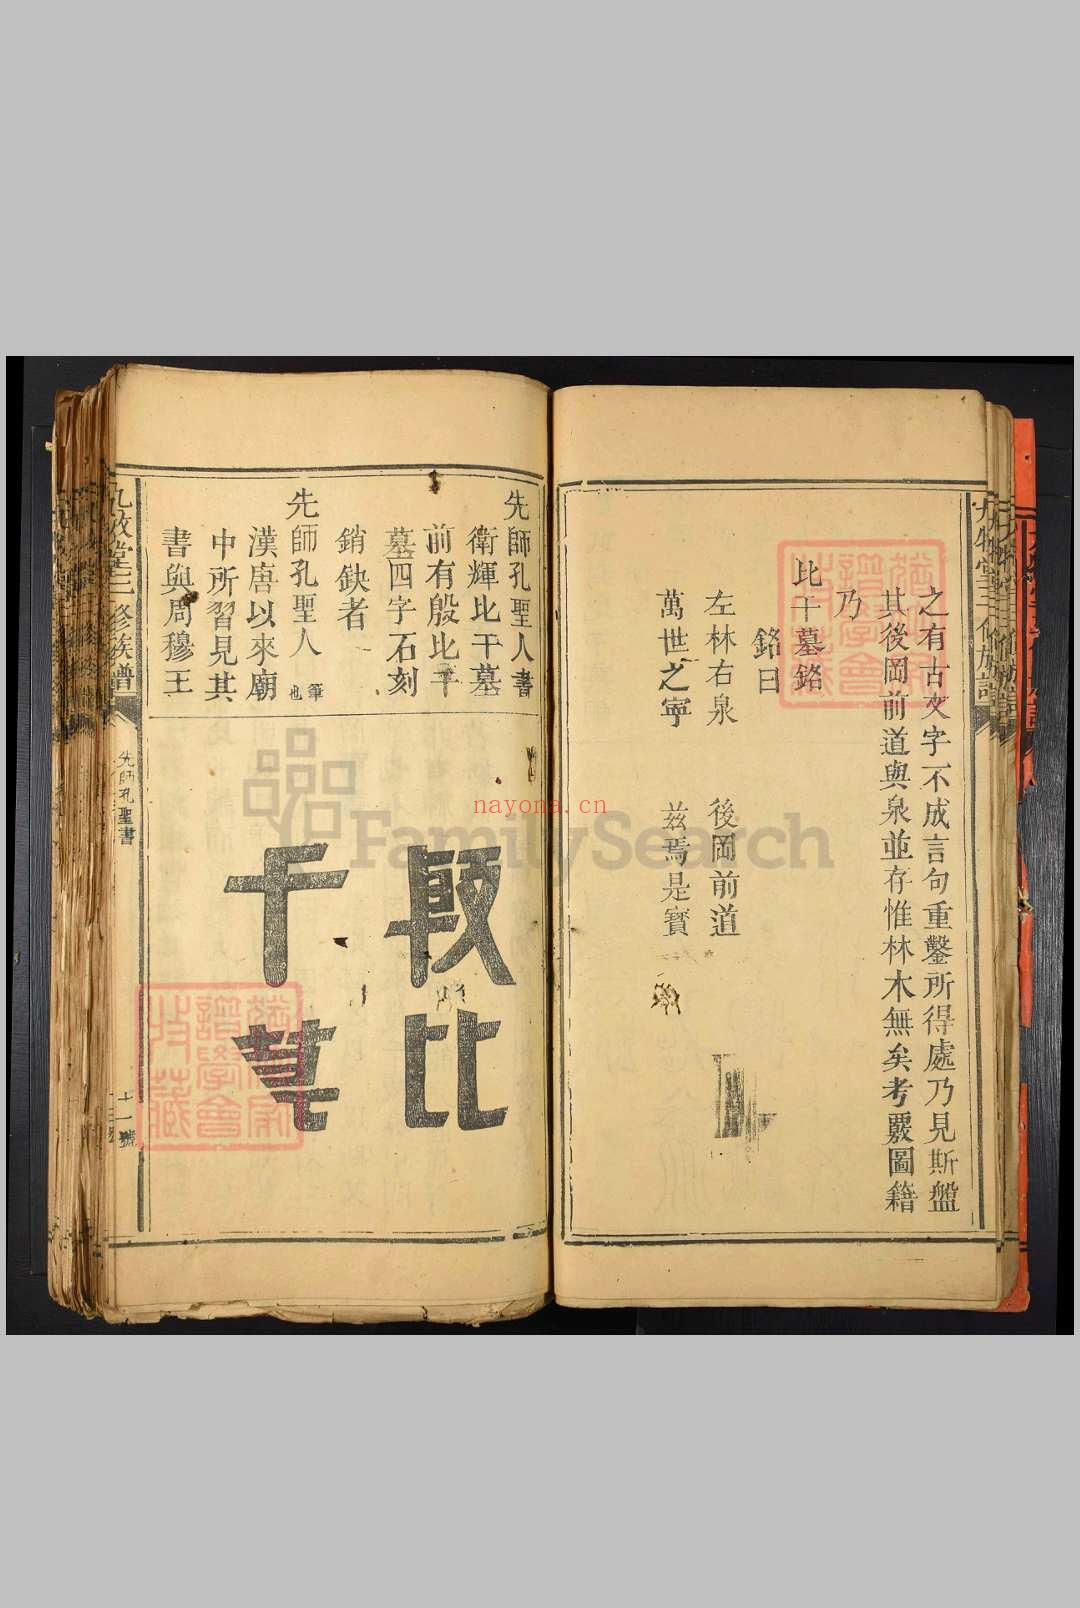 之有古文字不成言句重鑿所得處乃見斯盤
其後岡前道與泉並存惟林木無矣考覈圖籍
乃
比干墓銘
銘曰
左林右泉 後岡前道
萬世之寧 茲焉是寶
先師孔聖人書
衛輝比干墓
前有殷比干
墓四字石刻
銷缺者
先師孔聖人筆也
漢唐以來廟
中所習見其
書與周穆王
殷比
干墓
三修族譜
先師孔聖書
十一號
nayona.cn
FamilySearch